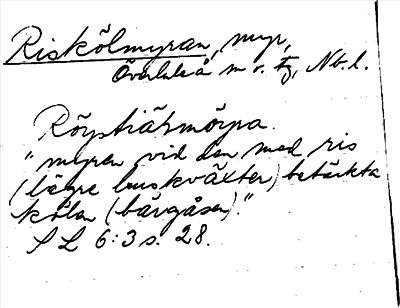 Riskölmyran, myr,
Överluleå sn o. tg, Nb. l.
Röystiärmörpa.
"myren vid den med ris
(lägre buskväxter) betäckta
kölen (bärgåsen)."
SL 6:3 s. 28.